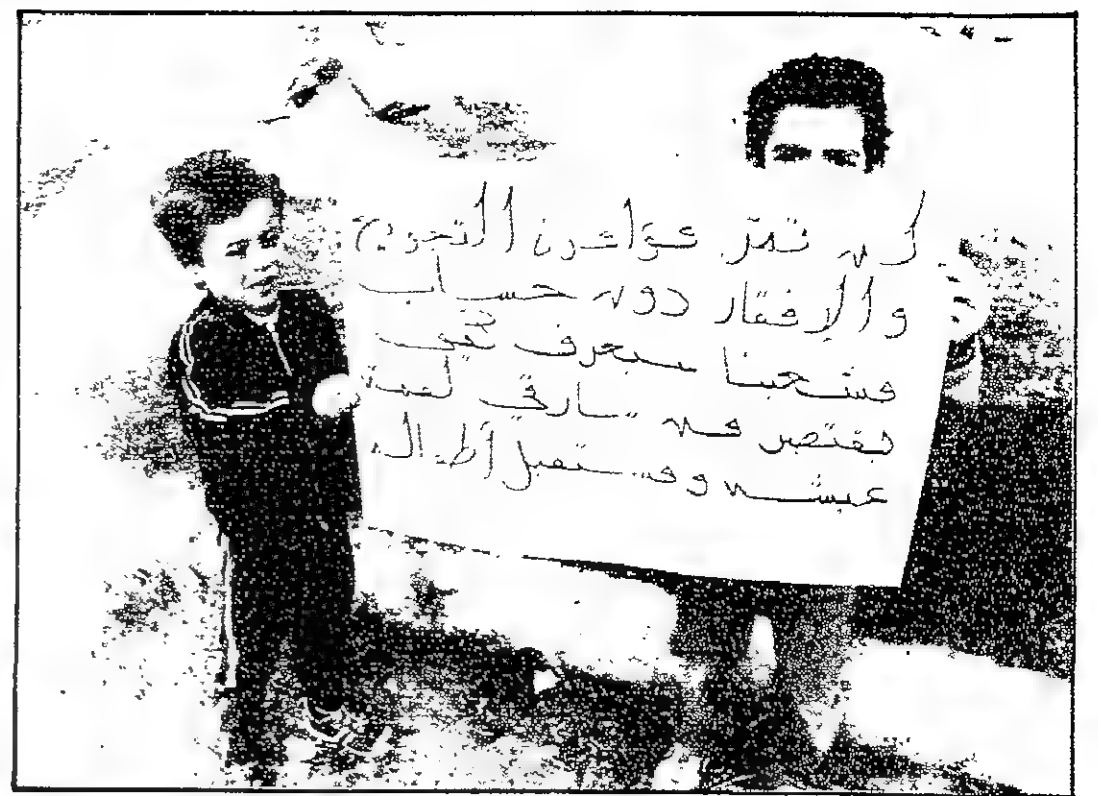 لن تمر مؤامرة التجويع
والإفقار دون حساب
فشعبنا سيعرف كيف
يقتص من سارقي لقمة
عيشه ومستقبل أطفاله